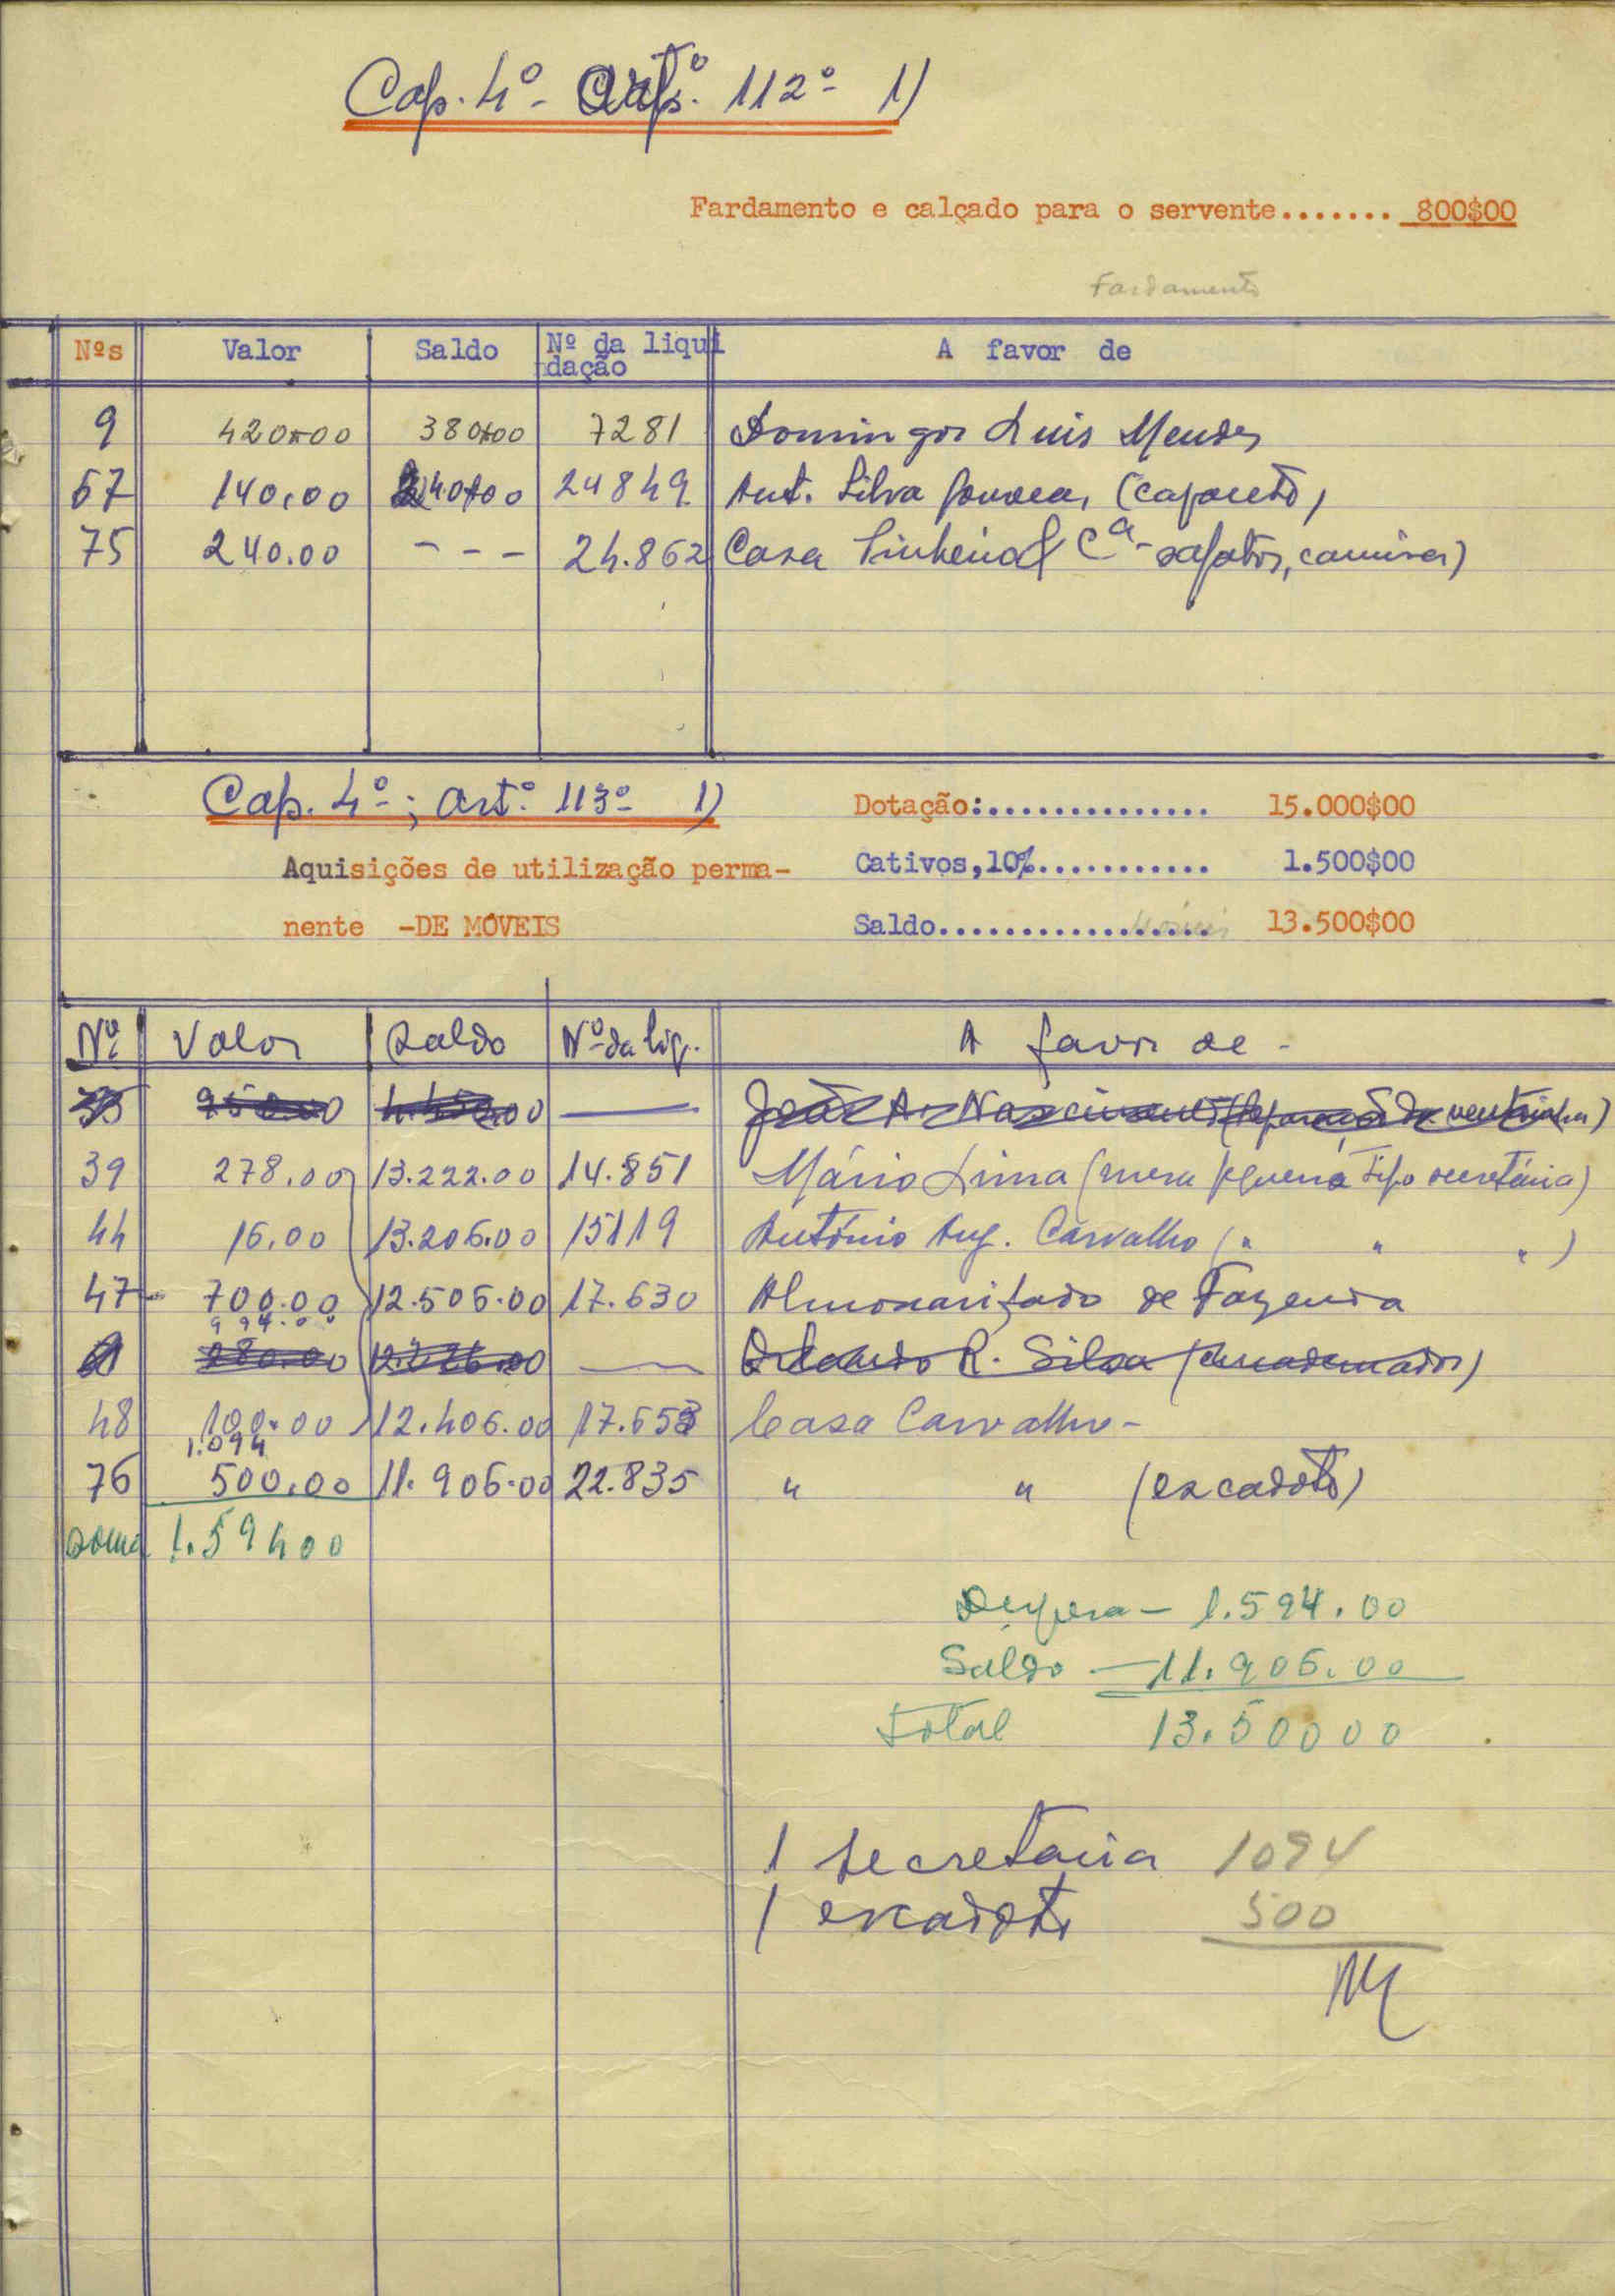 Cap. 4º - Artº. 112º 1)
Fardamento e calçado para o servente....... 800$00
Fardamento
Nºs Valor Saldo Nº da liqui A favor de
dação
9 420$00 380$00 7281 Domingos Luis Mendes
67 140.00 240$00 24849 Ant. Silva Gouveia, (capacete)
75 240.00 - - - 24.862 Casa Pinheiro & Cª - sapatos, camisas)
Cap. 4º; artº 113º 1) Dotação:.............. 15.000$00
Aquisições de utilização perma- Cativos,10%........... 1.500$00
nente -DE MÓVEIS Saldo................. Móveis 13.500$00
Nº Valor Saldo Nº da liq. A favor de -
João A. Nascimento
39 278.00 13.222.00 14.851 Mário Lima (mesa pequena tipo secretária)
44 16.00 13.206.00 15119 António Aug. Carvalho (" " ")
47 - 700.00 12.506.00 17.630 Almoxarifado de Fazenda
994.00
280.00 12.226.00 R. Silva (encadernador)
48 100.00 12.406.00 17.653 Casa Carvalho -
1.094
76 500.00 11.906.00 22.835 " " (escadote)
Soma 1.594 00
Despesa - 1.594.00
Saldo - 11.906.00
Total 13.500 00
1 secretária 1094
1 escadote 500